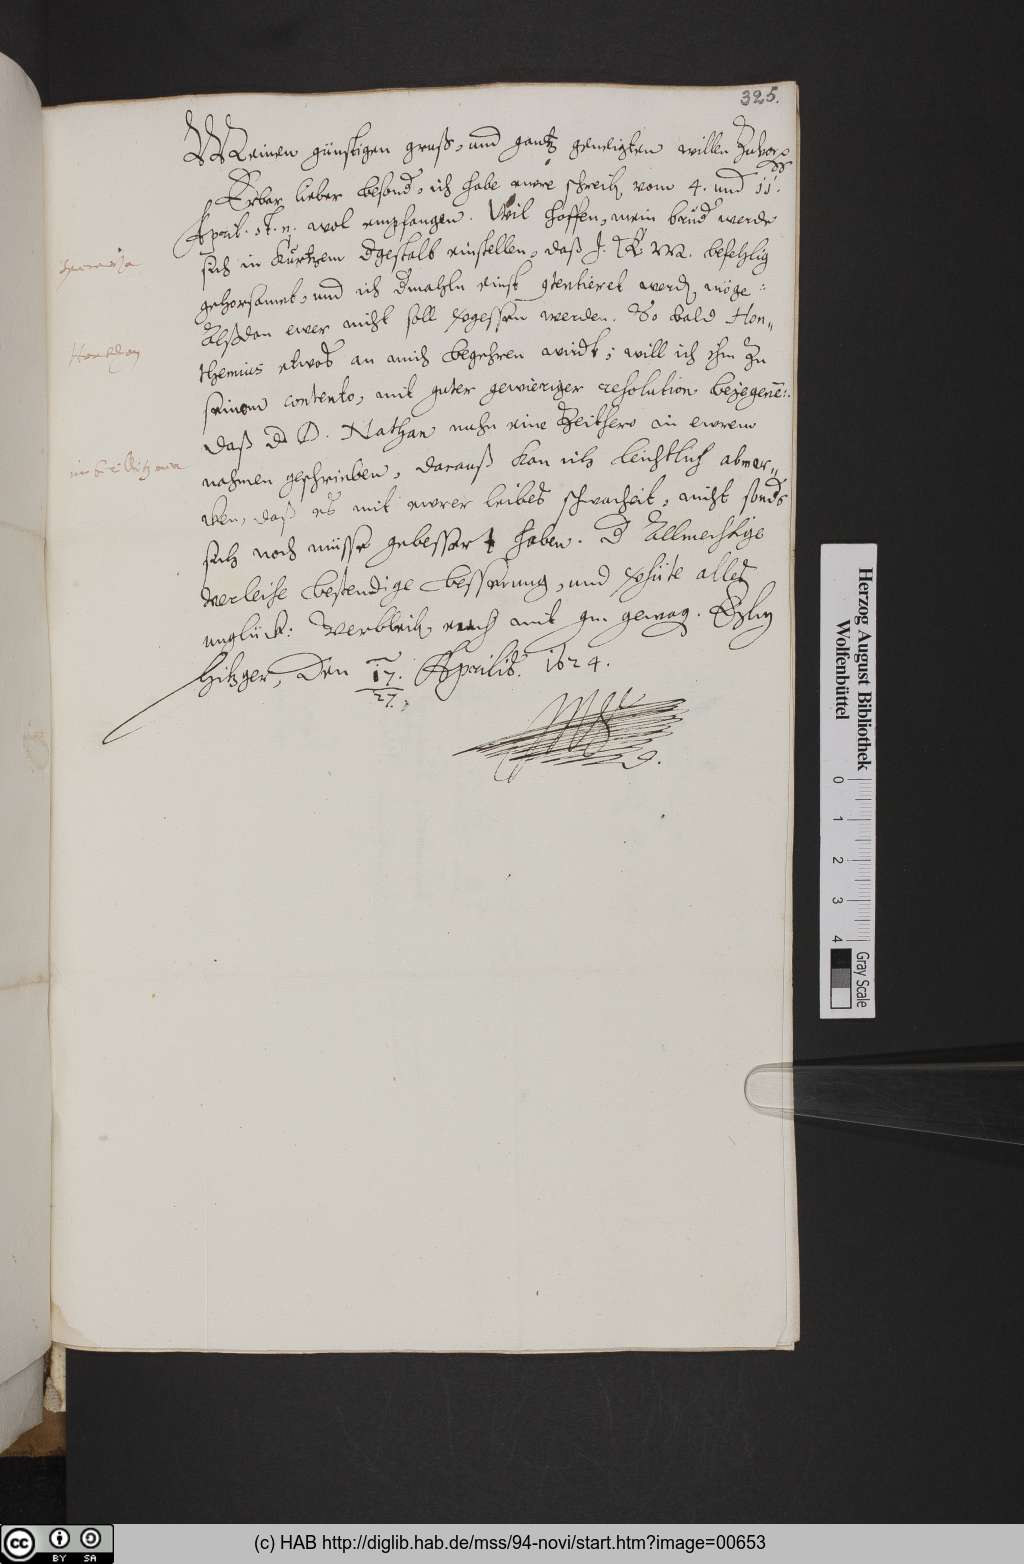 325.
Meinen günstigen gruß, und gantz geneigten willen zuvor,
Erbar lieber besond, ich habe ewre schreib vom 4. und 11.
April. st. n. wol empfangen. Wil hoffen, mein brud werde
sich in kurtzem dgestalt einstellen, daß J. K. Ma. befehlig
gehorsamet, und ich dmahln einst contentieret werd möge:
Alßdan ewer nicht soll vergessen werden. So bald Hon„
themius etwas an mich begehren wirdt, will ich ihm zu
seinem contento, mit guter gewieriger resolution bejegene:.
daß d D. Nathan nuhn eine Zeithero in ewrem
nahmen geschrieben, darauß kan ich leichtlich abmer„
cken, daß es mit ewrer leibes schwacheit, nicht sonds
sich noch müsse gebessert haben. D Allmechtige
verleihe bestendige besserung, und verhüte alles
unglück: Verbleib euch mit gn. gewog.
Hitzger, Den 17. Aprilis. 1624.
27.
Herzog August Bibliothek
Wolfenbüttel
0 1 2 3 4
Gray Scale
cc BY SA
(c) HAB http://diglib.hab.de/mss/94-novi/start.htm?image=00653